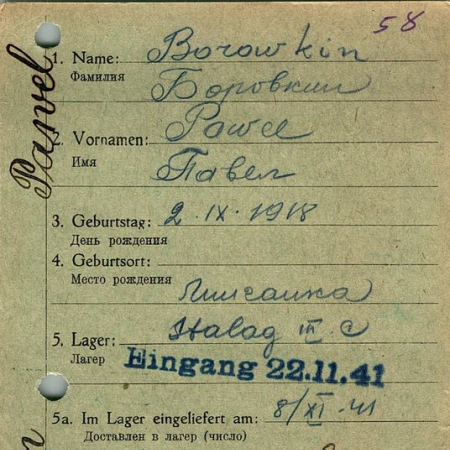 58
1. Name: Borowkin
Фамилия Боровкин
2. Vornamen: Pawel
Имя Павел
Pawel
3. Geburtstag: 2.IX.1918
День рождения
4. Geburtsort:
Место рождения
5. Lager: Stalag III C
Лагер
Eingang 22.11.41
5a. Im Lager eingeliefert am: 8/XI.41
Доставлен в лагер (число)